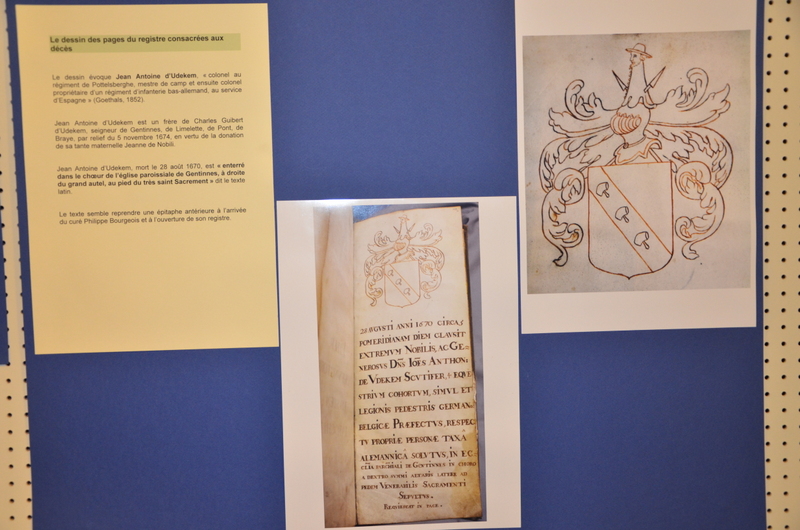 Le dessin des pages du registre consacrées aux
décès
Le dessin évoque Jean Antoine d'Udekem, « colonel au
régiment de Pottelsberghe, mestre de camp et ensuite colonel
propriétaire d'un régiment d'infanterie bas-allemand, au service
d'Espagne » (Goethals, 1852).
Jean Antoine d'Udekem est un frère de Charles Guibert
d'Udekem, seigneur de Gentinnes, de Limelette, de Pont, de
Braye, par relief du 5 novembre 1674, en vertu de la donation
de sa tante maternelle Jeanne de Nobili.
Jean Antoine d'Udekem, mort le 28 août 1670, est « enterré
dans le chœur de l'église paroissiale de Gentinnes, à droite
du grand autel, au pied du très saint Sacrement » dit le texte
latin.
Le texte semble reprendre une épitaphe antérieure à l'arrivée
du curé Philippe Bourgeois et à l'ouverture de son registre.
28 AUGUSTI ANNI 1670 CIRCA 5
POMERIDIANAM DIEM CLAUSIT
EXTREMUM NOBILIS, AC GE=
NEROSUS DNS IOES ANTHON:
DE VDEKEM SCUTIFER, EQUE
STRIUM COHORTUM, SIMUL ET
LEGIONIS PEDESTRIS GERMAN:
BELGICÆ PRÆFECTUS, RESPEC
TU PROPRIÆ PERSONÆ TAXA
ALEMANNICA SOLUTUS, IN EC
PAROCHIALI DE GENTINNES IN CHORO
A DEXTRO SUMMI ALTARIS LATERE AD
PEDEM VENERABILIS SACRAMENTI
SEPULTUS.
REQUIESCAT IN PACE.